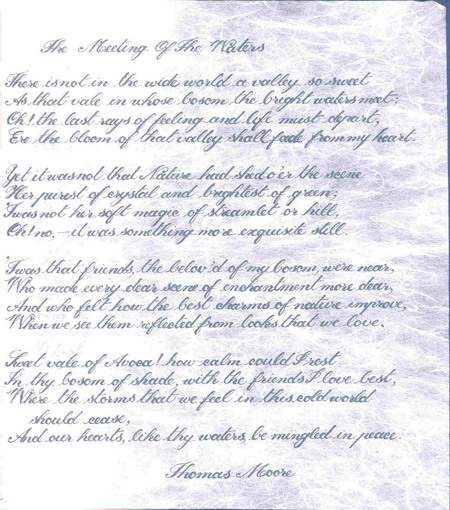 The Meeting Of The Waters
There is not in the wide world a valley so sweet
As that vale in whose bosom the bright waters meet;
Oh! the last rays of feeling and life must depart,
Ere the bloom of that valley shall fade from my heart.
Yet it was not that Nature had shed o'er the scene
Her purest of crystal and brightest of green;
'Twas not her soft magic of streamlet or hill,
Oh! no, – it was something more exquisite still.
'Twas that friends, the belov'd of my bosom, were near,
Who made every dear scene of enchantment more dear,
And who felt how the best charms of nature improve,
When we see them reflected from looks that we love.
Sweet vale of Avoca! how calm could I rest
In thy bosom of shade, with the friends I love best,
Where the storms that we feel in this cold world
should cease,
And our hearts, like thy waters, be mingled in peace.
Thomas Moore